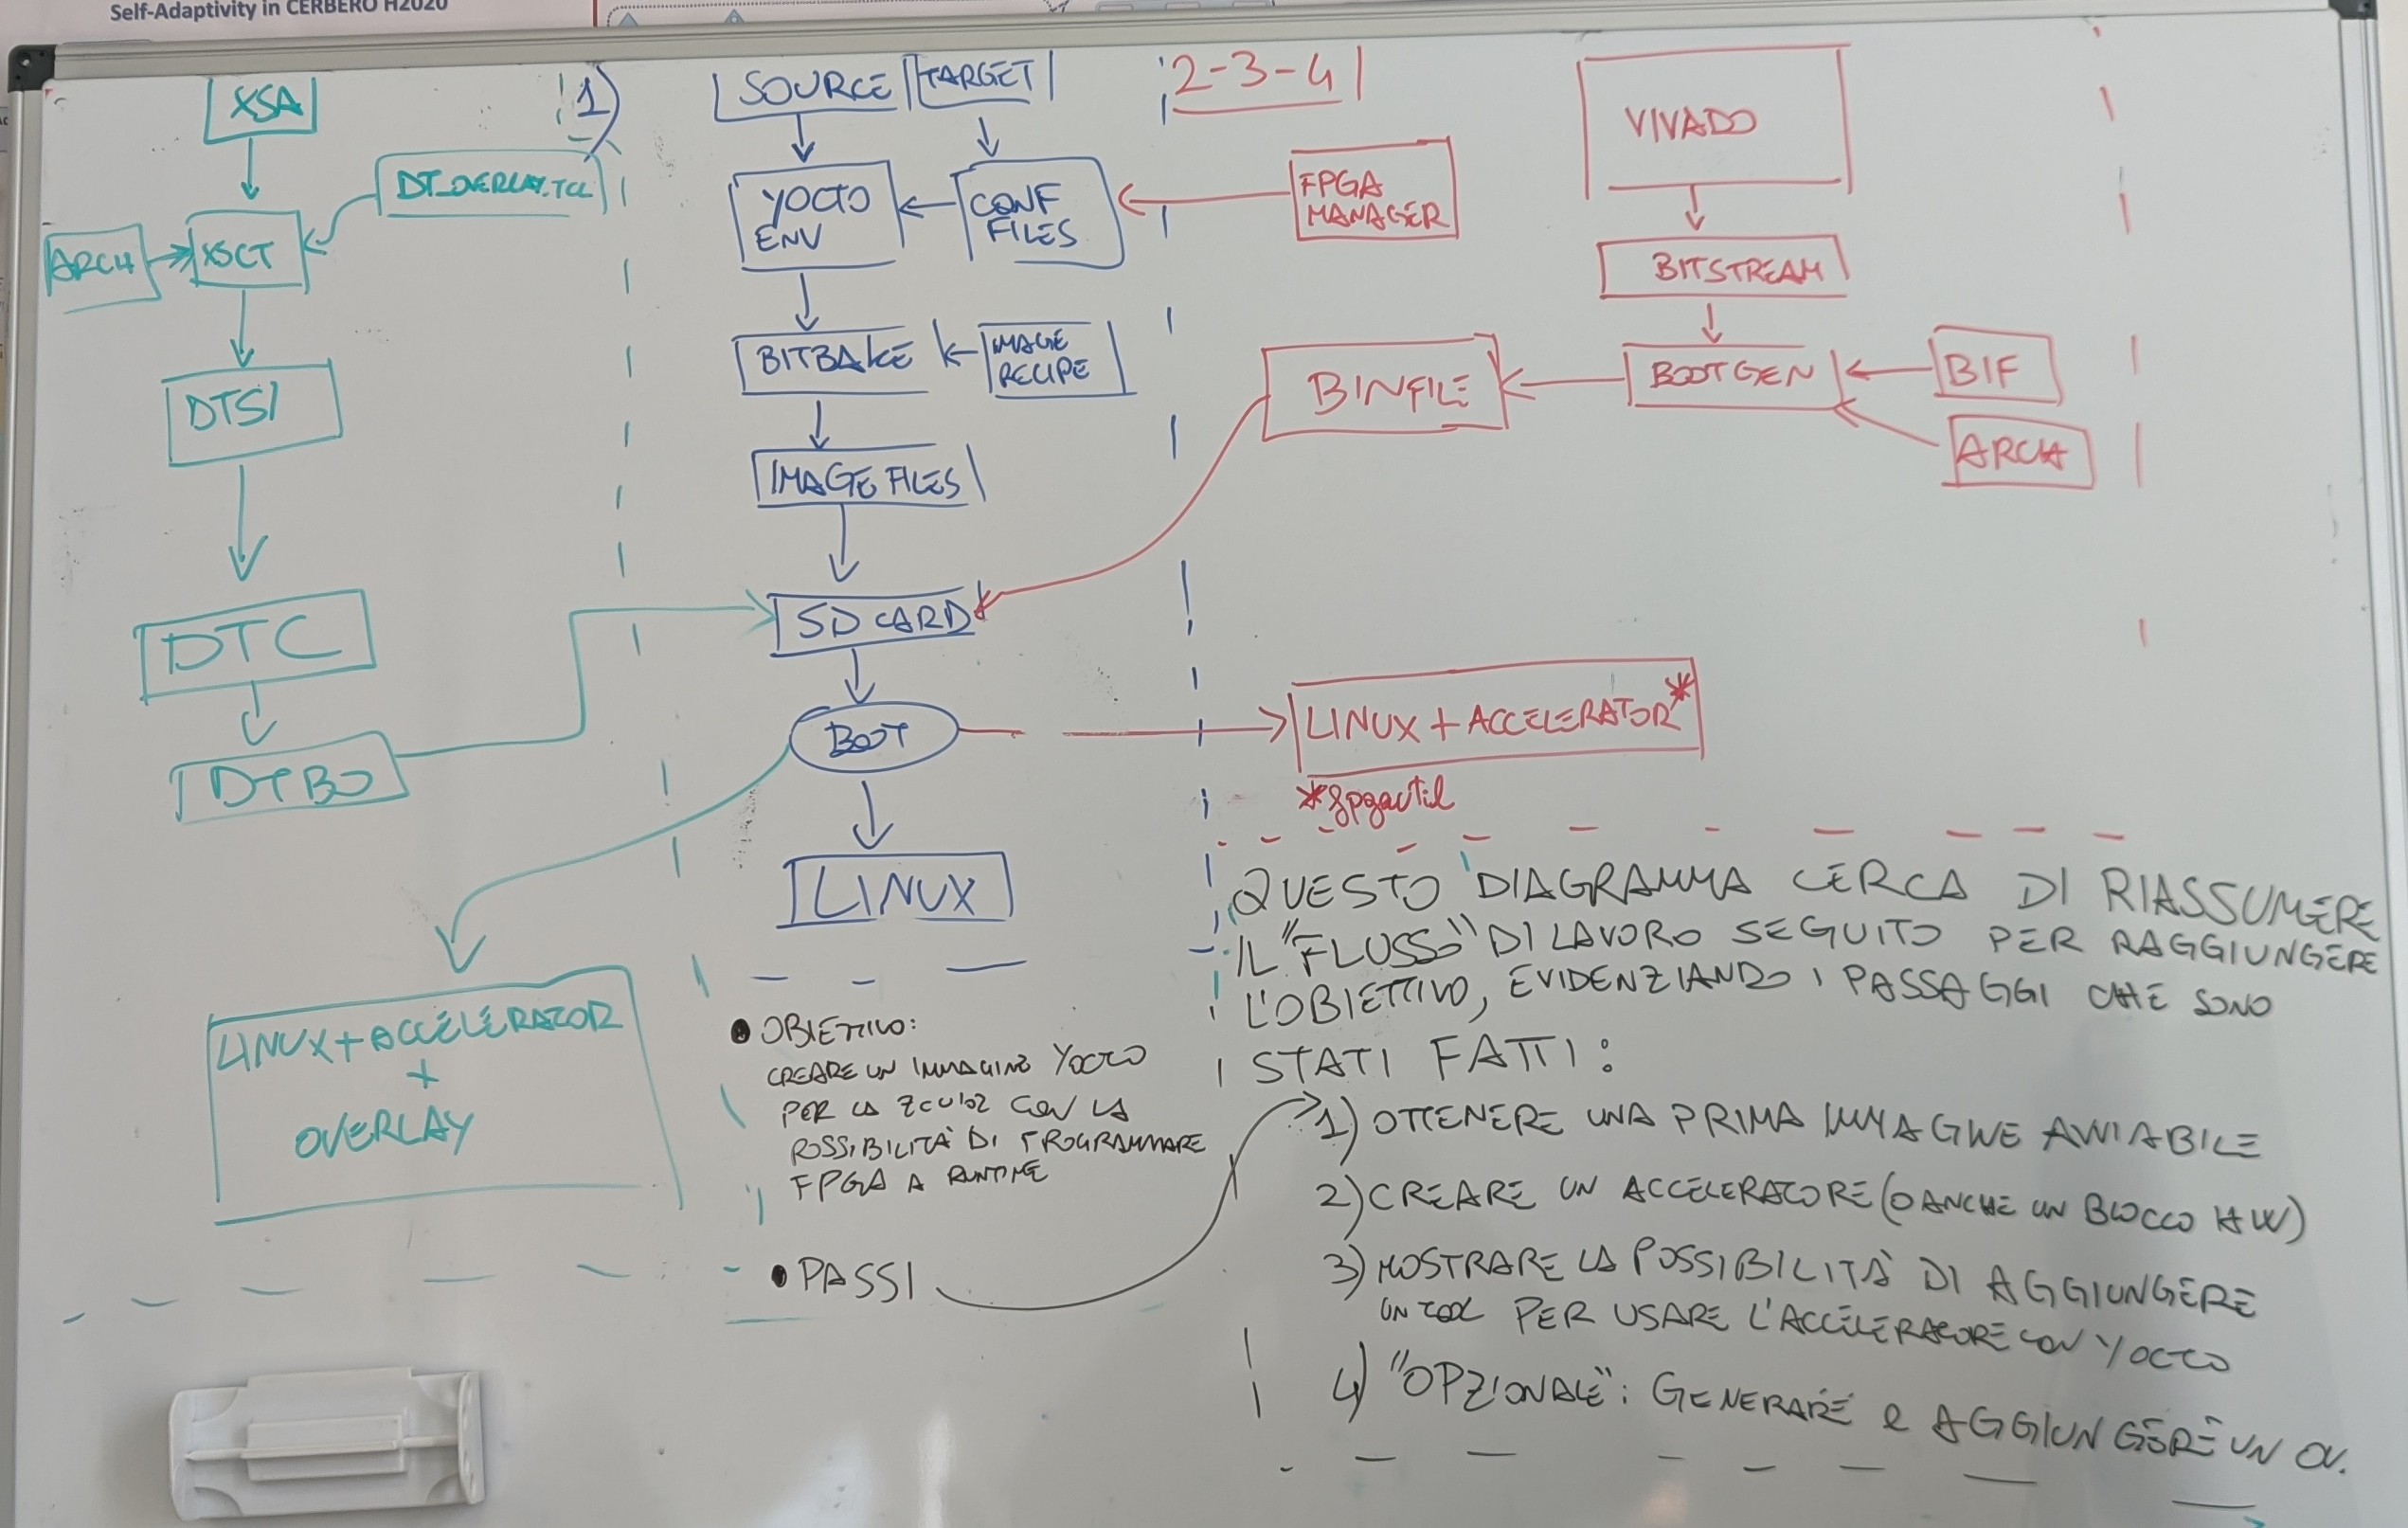 Self-Adaptivity in CERBERO H2020
XSA
DT_OVERLAY.TCL
ARCH
XSCT
DTSI
DTC
DTBO
LINUX + ACCELERATOR
+
OVERLAY
1)
SOURCE
TARGET
YOCTO
ENV
CONF
FILES
BITBAKE
IMAGE
RECIPE
IMAGE FILES
SD CARD
BOOT
LINUX
2-3-4
FPGA
MANAGER
VIVADO
BITSTREAM
BOOTGEN
BIF
ARCH
BINFILE
LINUX + ACCELERATOR*
*fpgautil
• OBIETTIVO:
CREARE UN IMMAGINE YOCTO
PER LA ZCU102 CON LA
POSSIBILITÀ DI PROGRAMMARE
FPGA A RUNTIME
• PASSI
QUESTO DIAGRAMMA CERCA DI RIASSUMERE
IL "FLUSSO" DI LAVORO SEGUITO PER RAGGIUNGERE
L'OBIETTIVO, EVIDENZIANDO I PASSAGGI CHE SONO
STATI FATTI:
1) OTTENERE UNA PRIMA IMMAGINE AVVIABILE
2) CREARE UN ACCELERATORE (O ANCHE UN BLOCCO HW)
3) MOSTRARE LA POSSIBILITÀ DI AGGIUNGERE
UN TOOL PER USARE L'ACCELERATORE CON YOCTO
4) "OPZIONALE": GENERARE E AGGIUNGERE UN OV.